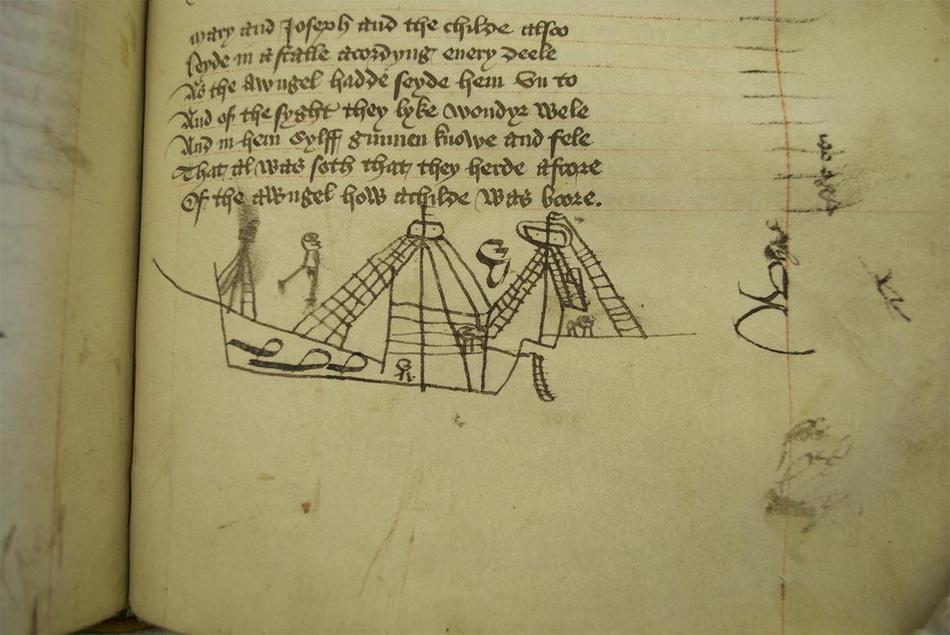 mary and Joseph and the childe also
leyde in a stalle acordyng euery deele
As the Awngel hadde seyde hem vn to
And of the syght they lyke wondyr wele
And in hem sylff gunnen knowe and fele
That al was soth that they herde afoore
Of the awngel how a childe was boore.